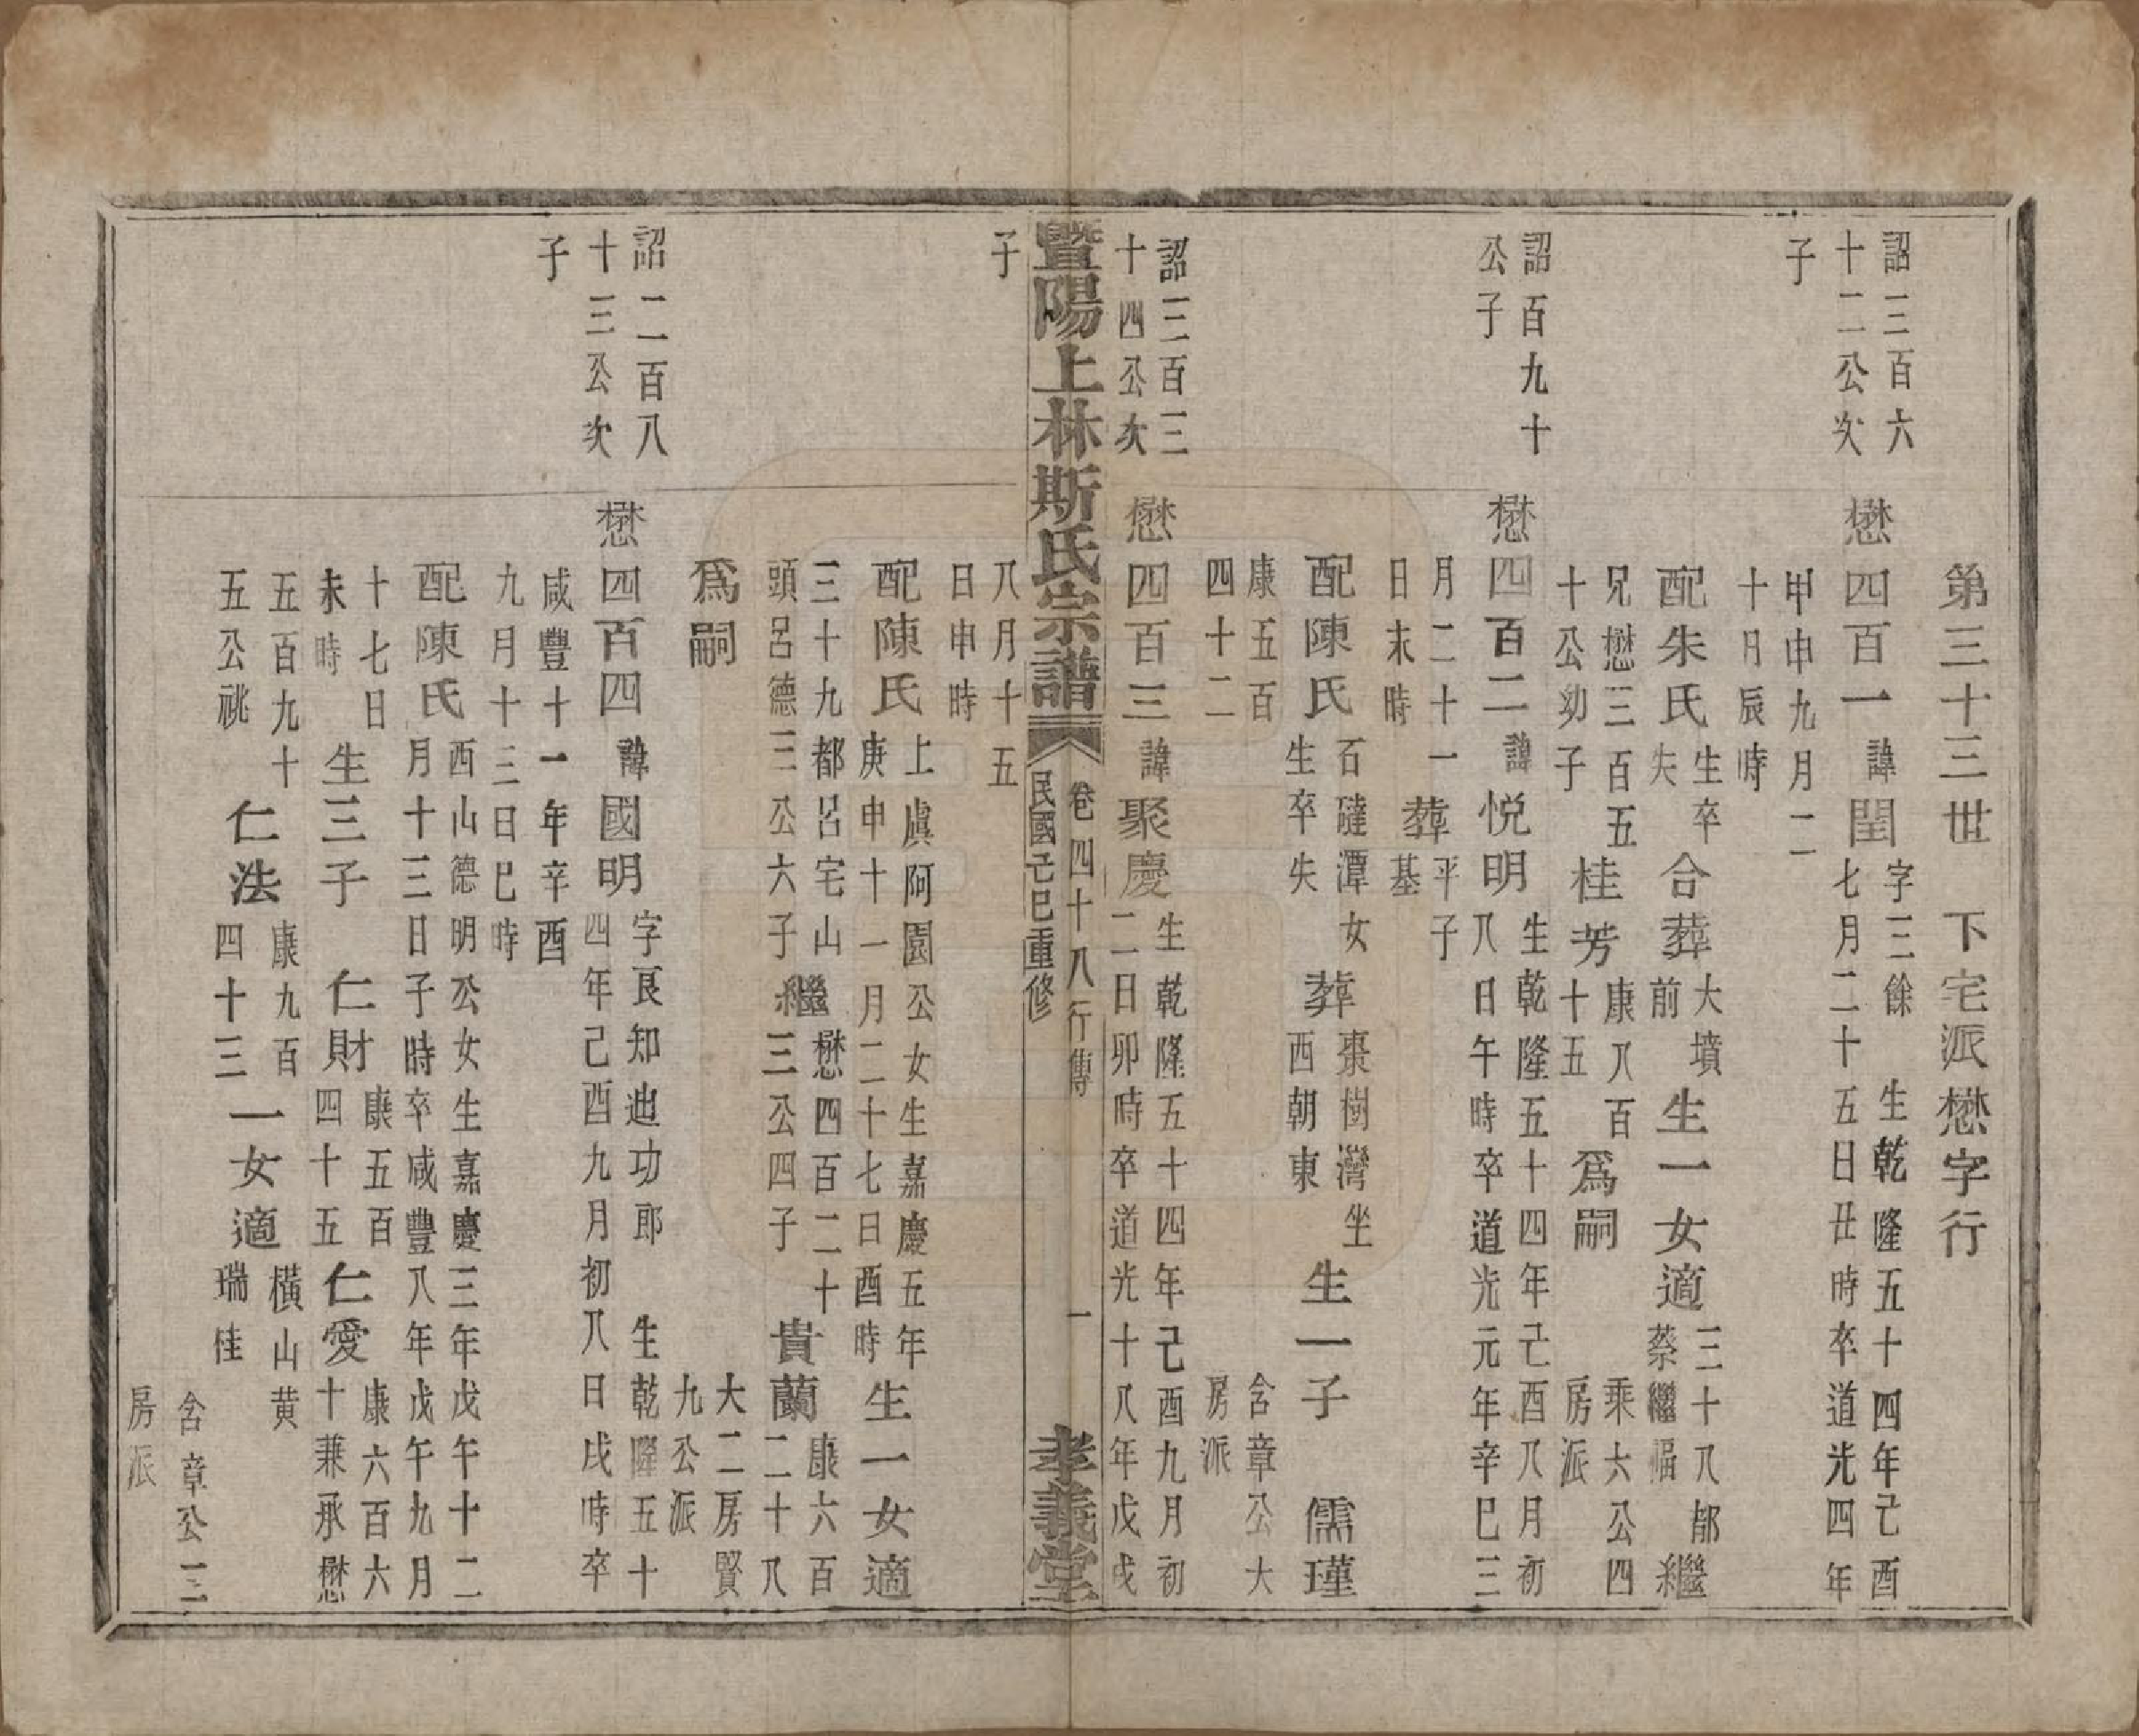 第三十三世　下宅派懋字行
詔三百六
十二公次
子
懋四百一諱閏字三餘　生乾隆五十四年己酉
七月二十五日丑時卒道光四年
甲申九月二
十日辰時
配朱氏生卒
失合葬大墳
前生一女適三十八都
蔡繼福繼
兄懋三百五
十公幼子桂芳康八百
十五爲嗣乘六公四
房派
詔百九十
公子
懋四百二諱悅明生乾隆五十四年己酉八月初
八日午時卒道光元年辛巳三
月二十一
日未時葬平子
基
配陳氏石礶潭女
生卒失葬棗樹灣坐
西朝東生一子　儒瑾
康五百
四十二
含章公大
房派
詔三百三
十四公次
子
懋四百三諱聚慶生乾隆五十四年己酉九月初
二日卯時卒道光十八年戊戌
暨陽上林斯氏宗譜
卷四十八行傳　一
民國己巳重修
孝義堂
八月十五
日申時
配陳氏上虞阿園公女生嘉慶五年
庚申十一月二十七日酉時生一女適
三十九都呂宅山
頭呂德三公六子繼懋四百二十
三公四子貴蘭康六百
二十八
爲嗣大二房賢
九公派
詔二百八
十三公次
子
懋四百四諱國明字良知迪功郎　生乾隆五十
四年己酉九月初八日戌時卒
咸豐十一年辛酉
九月十三日巳時
配陳氏西山德明公女生嘉慶三年戊午十二
月十三日子時卒咸豐八年戊午九月
十七日
未時生三子　仁財康五百
四十五仁愛康六百六
十兼承懋
五百九十
五公祧仁法康九百
四十三一女適橫山黄
瑞桂
含章公三
房派